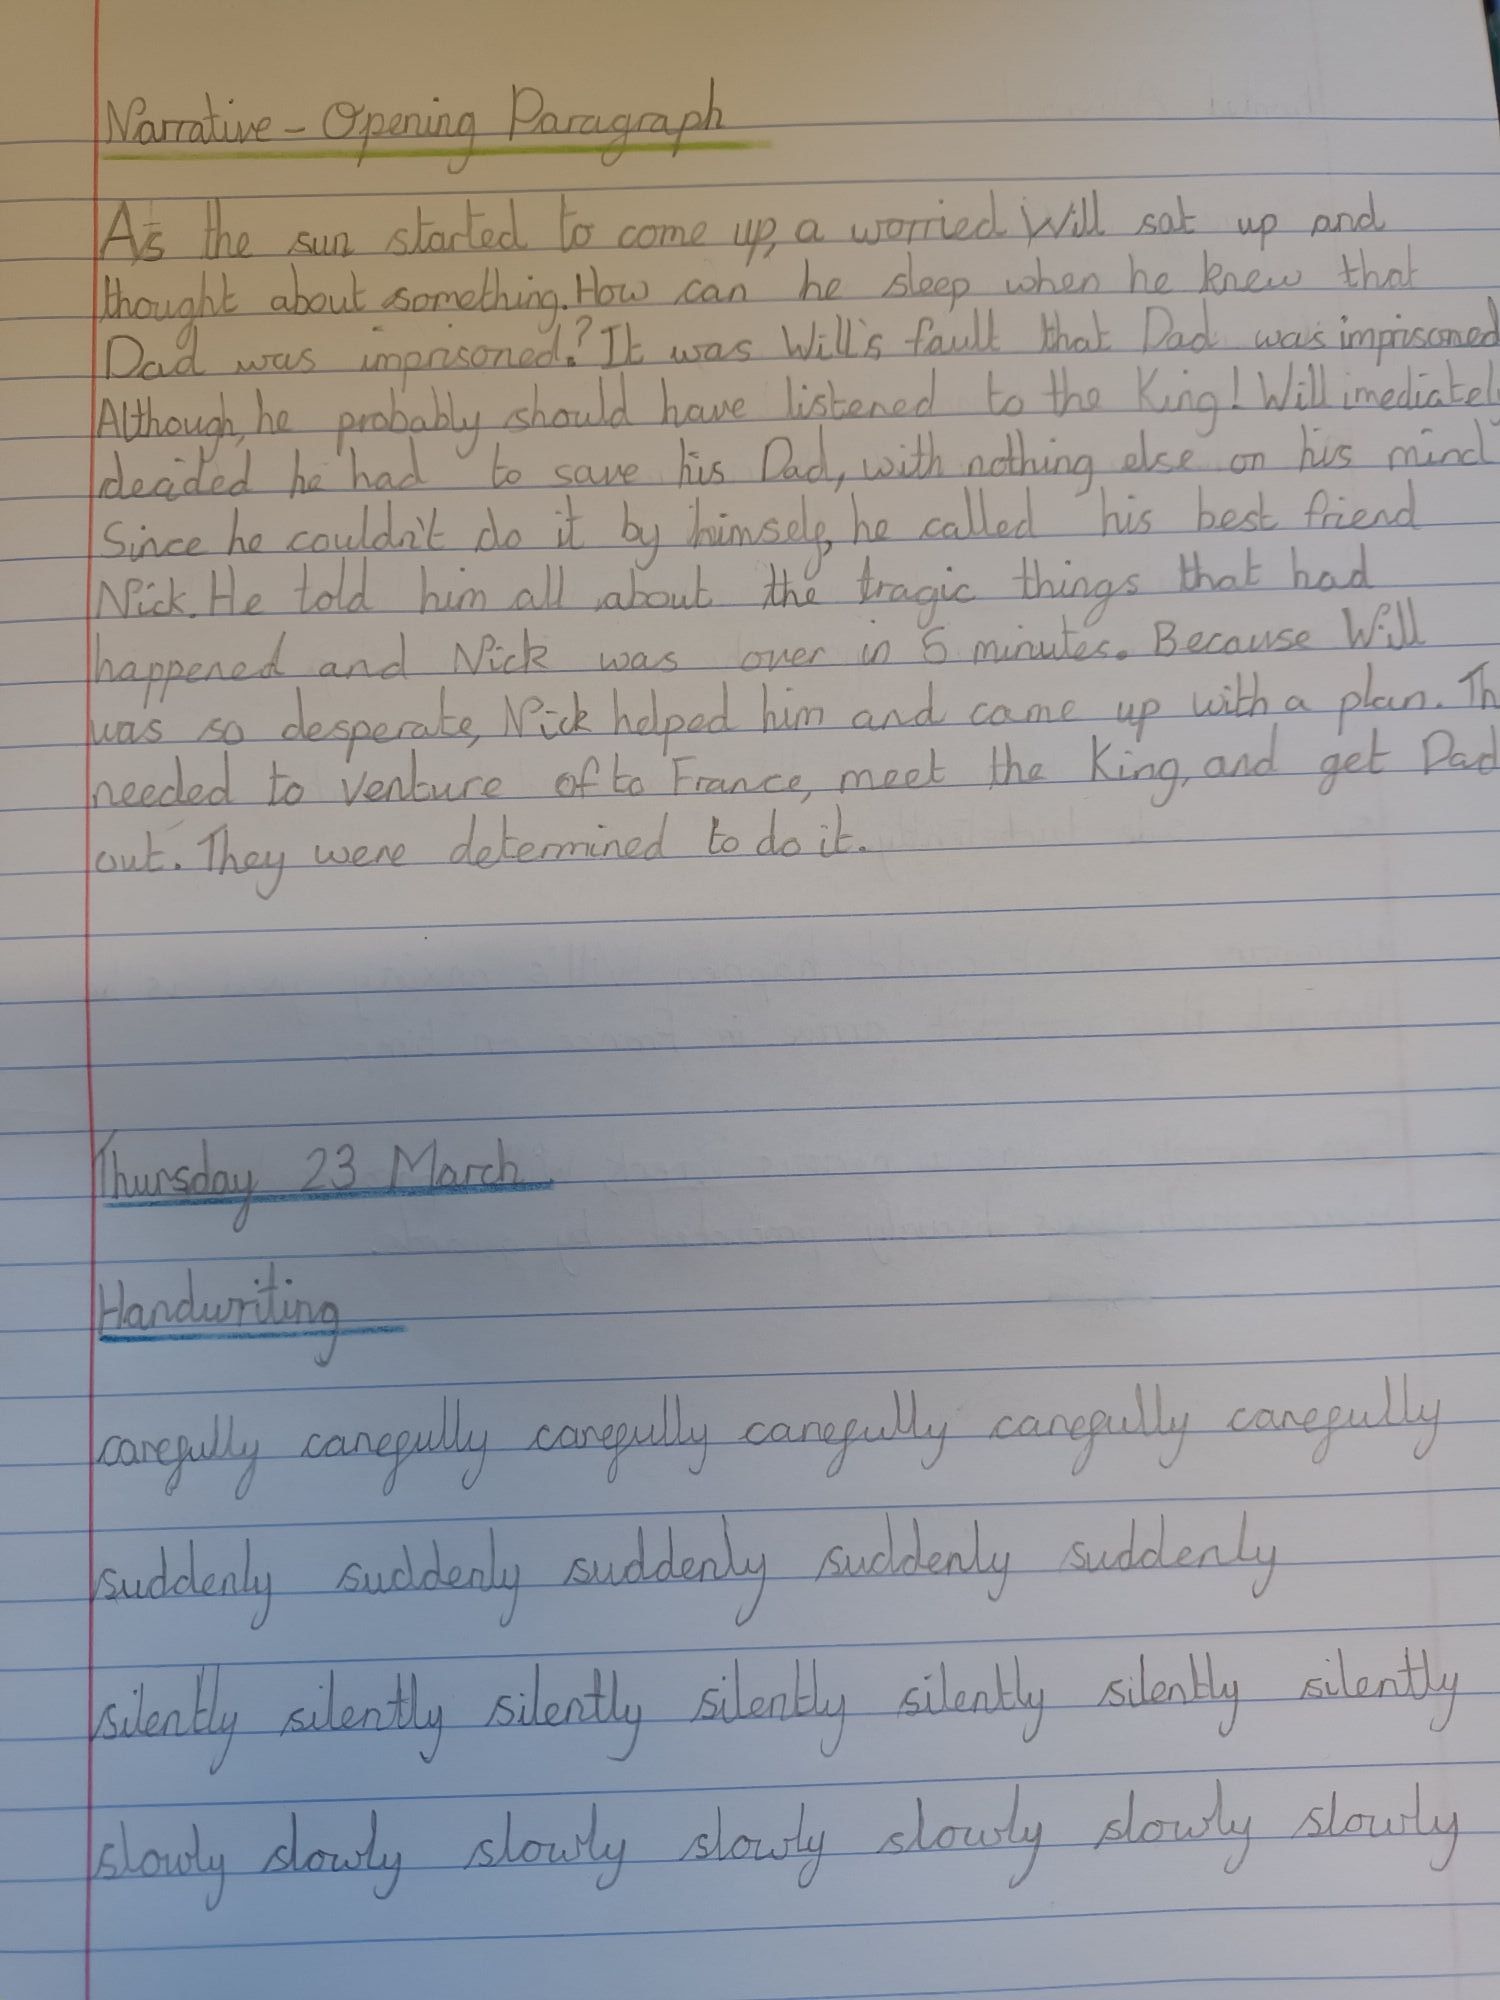 Narrative - Opening Paragraph
As the sun started to come up, a worried Will sat up and
thought about something. How can he sleep when he knew that
Dad was imprisoned? It was Will's fault that Dad was imprisoned
Although, he probably should have listened to the King! Will imediatel
decided he had to save his Dad, with nothing else on his mind
Since he couldn't do it by himself, he called his best friend
Nick. He told him all about the tragic things that had
happened and Nick was over in 5 minutes. Because Will
was so desperate, Nick helped him and came up with a plan. Th
needed to venture of to France, meet the King, and get Dad
out. They were determined to do it.
Thursday 23 March
Handwriting
carefully carefully carefully carefully carefully carefully
suddenly suddenly suddenly suddenly suddenly
silently silently silently silently silently silently silently
slowly slowly slowly slowly slowly slowly slowly